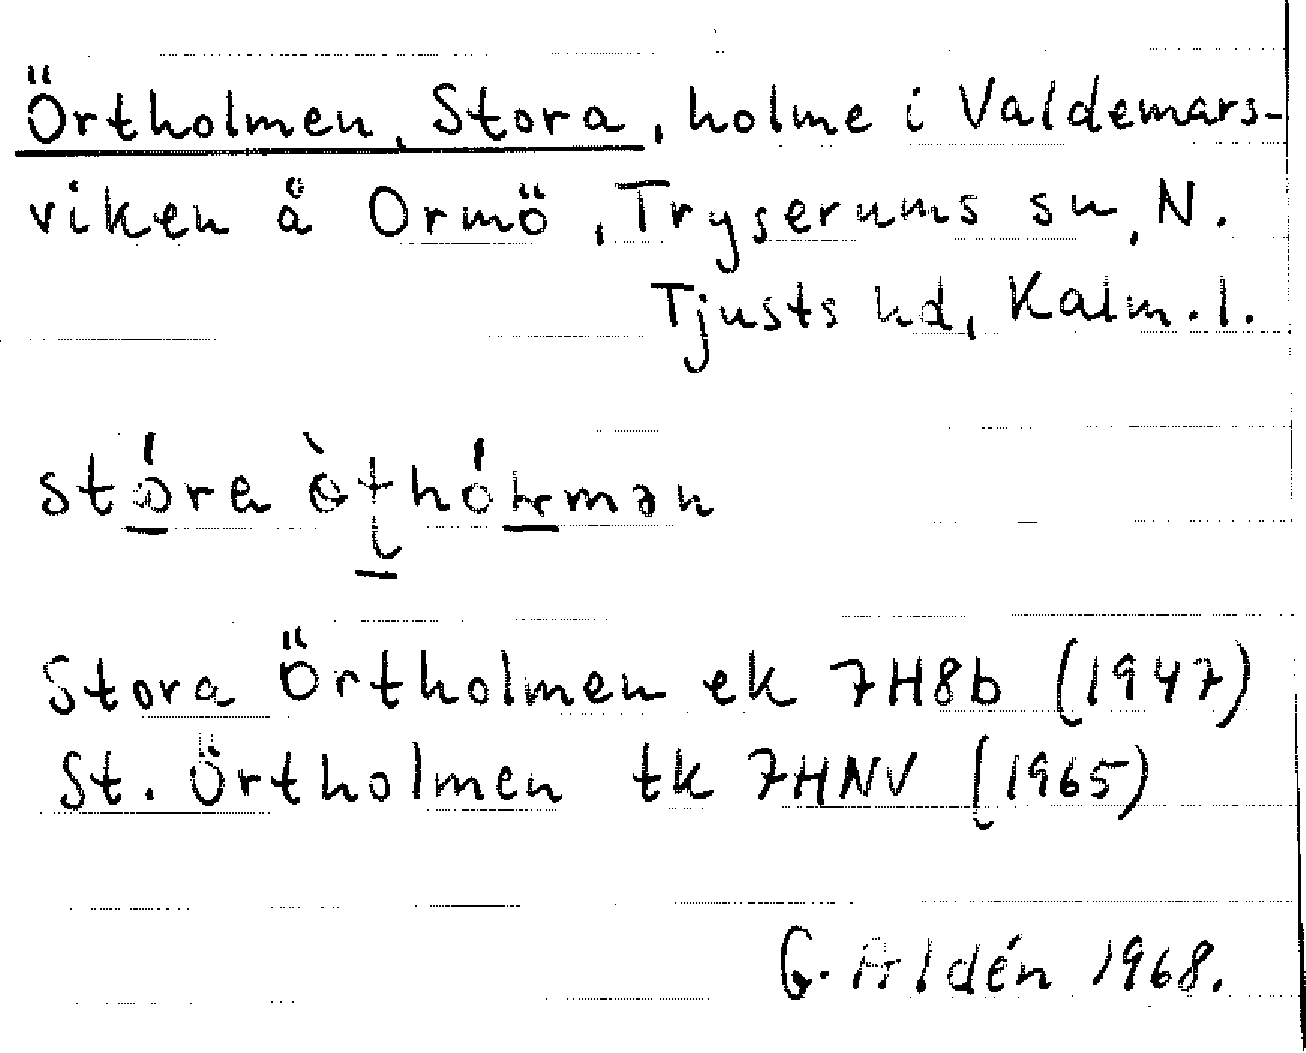 Örtholmen, Stora, holme i Valdemars-
viken å Ormö, Tryserums sn, N.
Tjusts hd, Kalm. l.
Stora Örtholmen ek 7H8b (1947)
St. Örtholmen tk 7HNV (1965)
G. Aldén 1968.